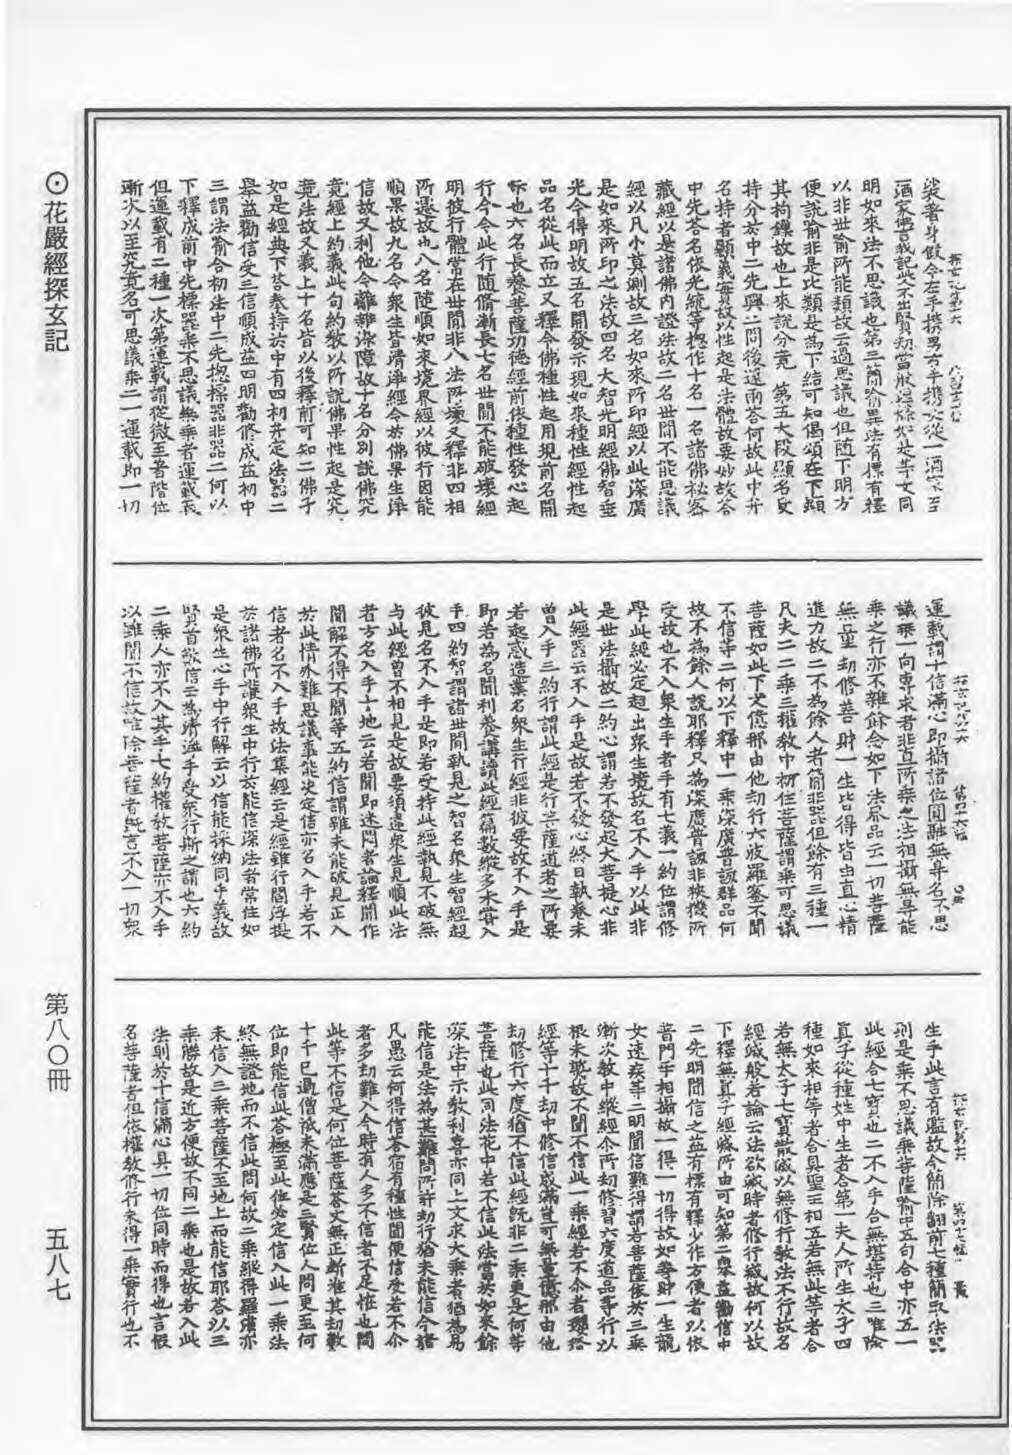 ⊙花嚴經探玄記
第八〇冊
五八七
明如來法不思議也第三簡
以非世喻所能類故云過思議也但随下明方
便說喻非是比類是為下結可知偈頌在下顯
持分於中二先興二問後還兩答何故此中并
中先答名依光統等揔作十名一名諸佛祕密
藏經以是諸佛内證法故二名世間不能思議
經以凡小莫測故三名如來所印經以此深廣
是如來所印之法故四名大智光明經佛智
光令得明故五名開發示現如來種性經性起
品名從此而立又釋令佛種性起用現前名開
示也六名長養菩薩功德經前依種性發心起
行今令此行随脩漸長七名世間不能破壞經
明彼行體常在世間非八法所壞又釋非四相
所遷故也八名随順如來境界經以彼行因能
順果故九名令衆生皆清淨經令於佛果生淨
信故又利他令離
障故十名分別說佛究
竟經上約義此句約教以所說佛果性起是究
竟法故又義上十名皆以後釋前可知二佛子
如是經典下答
持於中有四初弁定法器二
舉益勸信受三信順成益四明勸修成益初中
三謂法喻合初法中二先揔標器非器二何以
下釋成前中先標器乘不思議乘者運載義
但運載有二種一次第運載謂從微至著階位
漸次以至究竟名可思議乘二一運載即一切
運載謂十信滿心即攝諸位圓融無㝵名不思
議乘一向専求者非直所乘之法相攝無㝵能
乘之行亦不雜餘念如下法界品云一切菩薩
無量劫修善財一生皆得皆由直心精
進力故二不為餘人者簡非器但餘有三種一
凡夫二二乘三權教中初住菩薩謂乘可思議
菩薩如此下文億那由他劫行六波羅蜜不聞
不信等二何以下釋中一乘深廣普該群品何
故不為餘人說耶釋只為深廣普該非狹機所
受故也不入衆生手者手有七義一約位謂修
學此經必定超出衆生境故名不入手以此非
是世法攝故二約心謂若不發起大菩提心非
此經器云不入手是故若不發心終日執卷未
曾入手三約行謂此經是行菩薩道者之所要
若起惑造業名衆生行經非彼要故不入手是
即若為名聞利養講讀此經篇數縱多未嘗入
手四約智謂諸世間執見之智名衆生智經超
彼見名不入手是即若受持此經執見不破無
与此經曾不相見是故要須違衆生見順此法
者方名入手十地云若聞即迷悶者論釋聞作
聞解不得不聞等五約信謂雖未能破見正入
於此情外難思議事能決定信亦名入手若不
信者名不入手故法集經云是經雖行閻浮提
於諸佛所護衆生中行於能信深法者常住如
是衆生心手中行解云以信能採納同手義故
賢首
信云為清淨手受衆行斯之謂也六約
二乘人亦不入其手七約權教菩薩亦不入手
以雖聞不信故唯除菩薩者純言不入一切衆
生手此言有濫故今簡除翻前七種簡取法器
則是乘不思議乘菩薩喻中五句合中亦五一
此經合七寶也二不入手合無堪持也三唯除
真子從種姓中生者合第一夫人所生太子四
種如來相等者合具聖王相五若無此等者合
若無太子七寶散滅以無修行教法不行故名
經滅般若論云法欲滅時者修行滅故何以故
下釋無真子經滅所由可知第二舉益勸信中
二先明聞信之益有標有釋少作方便者以依
普門手相攝故一得一切得故如善財一生龍
女速疾等二明聞信難得謂若菩薩依於三乘
漸次教中縱經尒所劫修習六度道品等行以
根未熟故不聞不信此一乘經若不尒者瓔珞
經等十千劫中修信或滿豈可無量億那由他
劫修行六度猶不信此經既非二乘更是何等
菩薩也此同法花中若不信此法當於如來餘
深法中示教利喜亦同上文求大乘者猶為易
能信是法為甚難問所許劫行猶未能信今諸
凡愚云何得信答宿有種性聞便信受若不尒
者多劫難入今時有人多不信者不足恠也問
此等不信是何位菩薩答文無正斷准其劫數
十千已過僧祇未滿應是三賢位人問更至何
位即能信此答極至此位必定信入此一乘法
終無證地而不信此問何故二乘縱得羅漢亦
未信入三乘菩薩不至地上而能信耶答以三
乘勝故是近方便故不同二乘也是故若入此
法則於十信滿心具一切位同時而得也言假
名菩薩者但依權教修行未得一乘實行也不